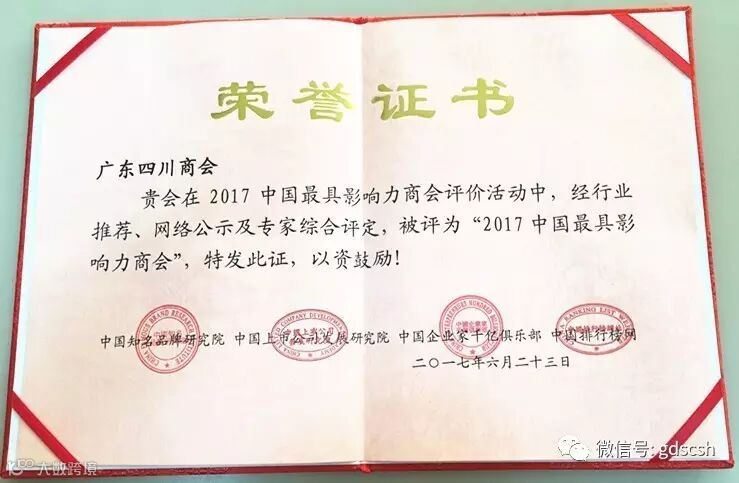 荣誉证书
广东四川商会
贵会在 2017 中国最具影响力商会评价活动中，经行业
推荐、网络公示及专家综合评定，被评为“2017 中国最具影
响力商会”，特发此证，以资鼓励！
中国知名品牌研究院 中国上市公司发展研究院 中国企业家千亿俱乐部 中国排行榜网
二〇一七年六月二十三日
微信号: gdscsh
大数跨境